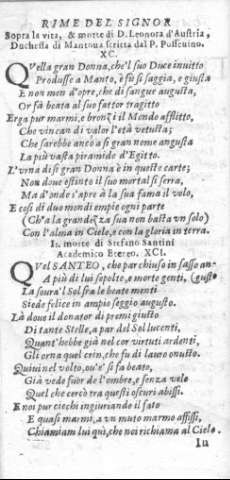 RIME DEL SIGNOR
Sopra la vita, & morte di D. Leonora d'Austria,
Duchessa di Mantoua scritta dal P. Posseuino.
XC.
QVella gran Donna, che'l suo Duce inuitto
Produsse a Manto, e fù sì saggia, e giusta
E non men d'opre, che di sangue augusta,
Or fà beata al suo fattor tragitto
Erga pur marmi, e bronzi il Mondo afflitto,
Che vincan di valor l'età vetusta;
Che sarebbe anco a sì gran nome angusta
La più vasta piramide d'Egitto.
L'vrna di sì gran Donna è in queste carte;
Non doue estinto il suo mortal si serra,
Ma d'onde s'apre à la sua fama il volo,
E così di duo mondi empie ogni parte
(Ch'a la grandezza sua non basta vn solo)
Con l'alma in Cielo, e con la gloria in terra.
In morte di Stefano Santini
Academico Etereo. XCI.
QVel SANTEO, che par chiuso in sasso an-
A più di lui sepolto, e morte genti, (gusto
La soura'l Sol fra le beate menti
Siede felice in ampio seggio augusto.
Là doue il donator di premi giusto
Di tante Stelle, a par del Sol lucenti,
Quant'hebbe già nel cor virtuti ardenti,
Gli orna quel crin, che fu di lauro onusto.
Quiui nel volto, ou'e' si fa beato,
Già vede fuor de l'ombre, e senza velo
Quel che cercò tra questi oscuri abissi.
E noi pur ciechi ingiuriando il fato
E quasi marmi, a vn muto marmo affissi,
Chiamiam lui quì, che noi richiama al Cielo.
In